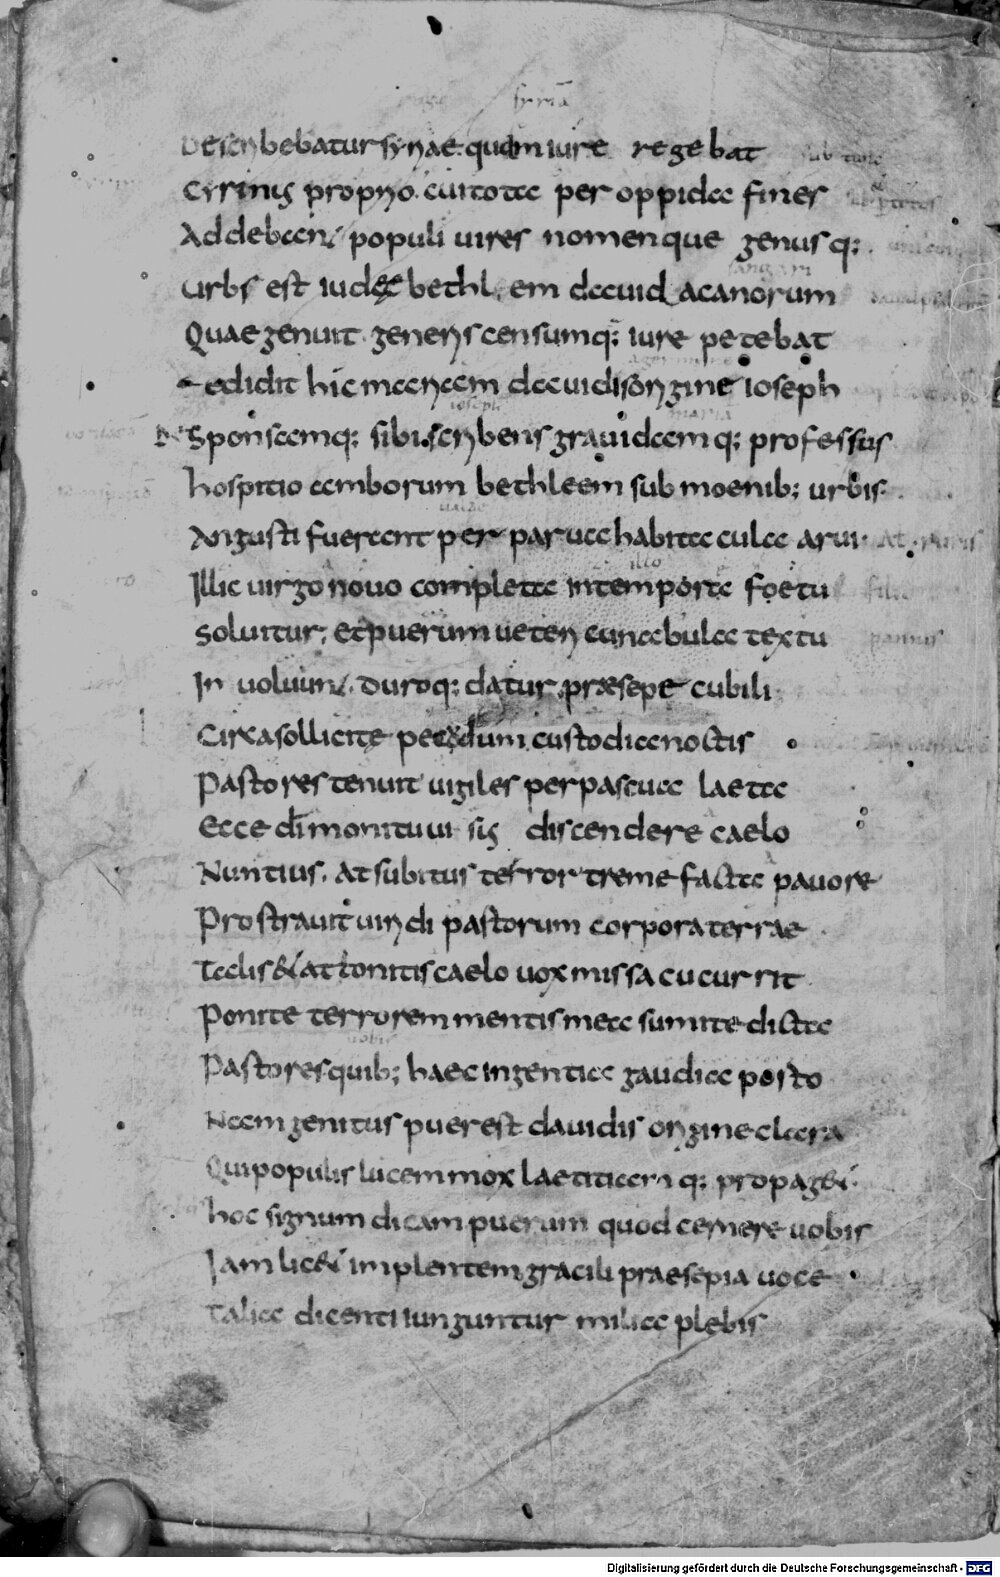 syriã
Describebatur syriae quam iure regebat
Cyrinis proprio. cuitota per oppida fines
Addebant populi uires nomenque genusq:
urbs est iudea bethleem dauid acanorum
Quae genuit generis censumq: iure petebat
edidit hic mariam dauidis origine ioseph
ioseph maria
Desponsamq: sibi scribens grauidamq: professus
hospitio amborum bethleem sub moenib; urbis
ualde
Angusti fuerant per parua habitacula arui
illo
Illic uirgo nouo completa intempore foetu
soluitur, et puerum ueteri cunabula textu pannis
Inuoluunt. duroq: datur praesepe cubili
Circa sollicite pecudum custodia noctis
Pastores tenuit uigiles per pascua laeta
Ecce di monitu uisis discendere caelo
Nuntius. At subitus terror tremefacta pauore
Prostrauit uiridi pastorum corpora terrae
Talis & attonitis caelo uox missa cucurrit
Ponite terrorem mentis mea sumite dicta
uobis
Pastores quib; haec ingentia gaudia porto
Nam genitus puer est dauidis origine clara
Qui populis lucem mox laetitiamq: propaget
hoc signum dicam puerum quod cernere uobis
Iam licet implentem gracili praesepia uoce
Talia dicenti iunguntur milia plebis
Digitalisierung gefördert durch die Deutsche Forschungsgemeinschaft - DFG